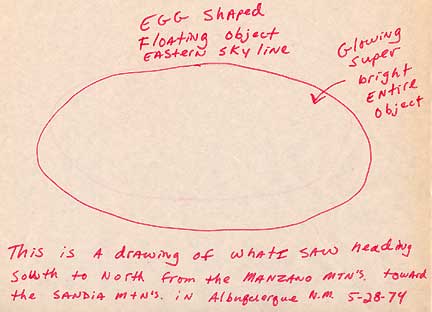 EGG Shaped
Floating Object
EASTERN SKY line
Glowing
Super
bright
ENtire
Object
This is A drawing of WhatI SAW heading
South to North from the MANZANO MTN'S. toward
the SANDIA MTN'S. in Albuquerque N.M. 5-28-74